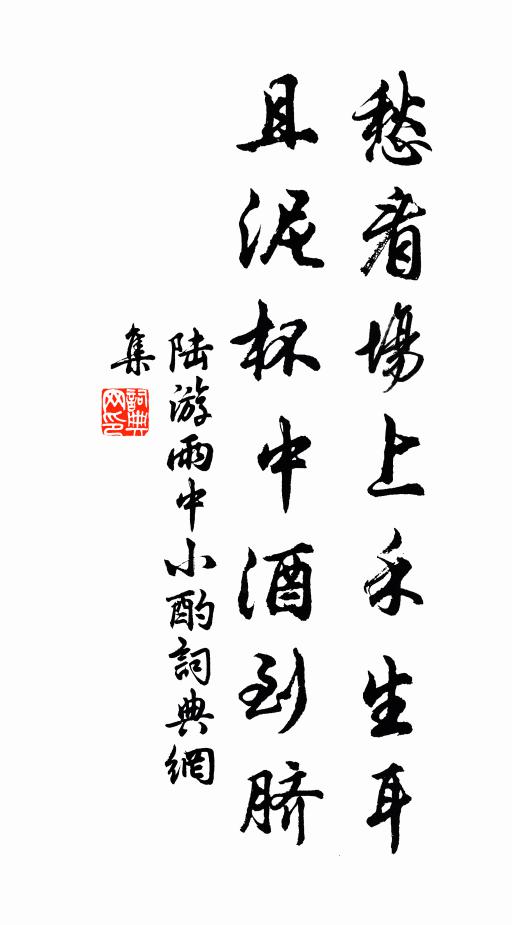 愁看場上禾生耳
且泥杯中酒到脐
陆游雨中小酌詞典網
集
詞典
网印